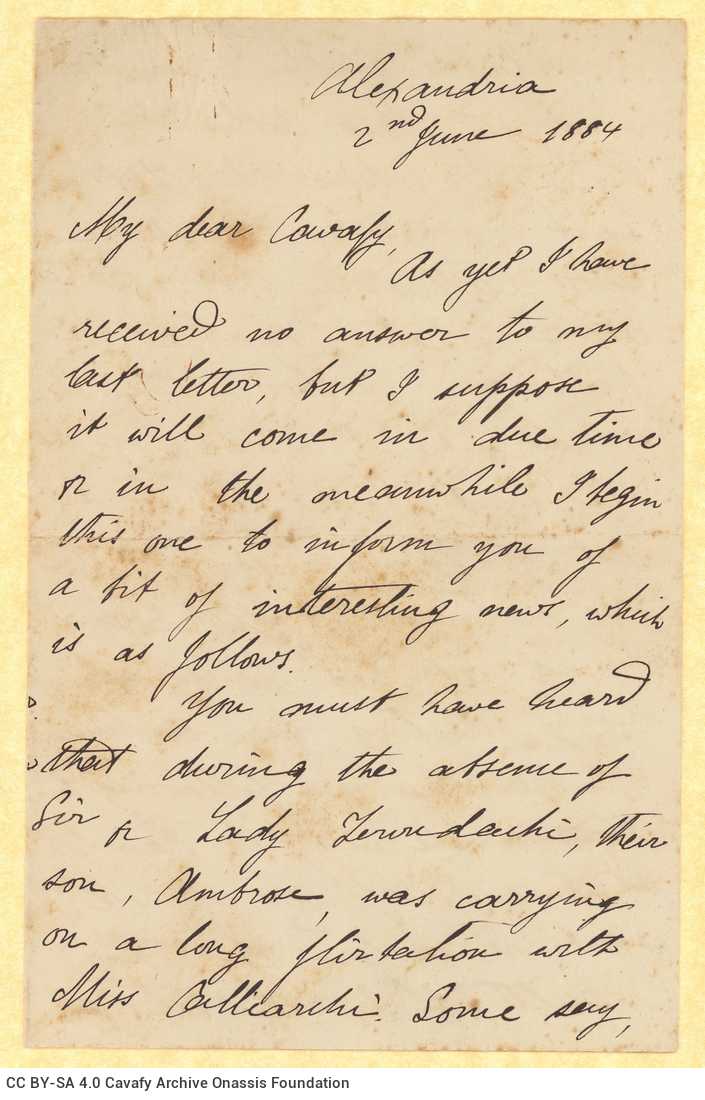 Alexandria
2nd June 1884
My dear Cavafy,
As yet I have
received no answer to my
last letter, but I suppose
it will come in due time
& in the meanwhile I begin
this one to inform you of
a bit of interesting news, which
is as follows.
You must have heard
that during the absence of
Sir & Lady Zervudachi, their
son, Ambrose, was carrying
on a long flirtation with
Miss Calliarchi. Some say,
CC BY-SA 4.0 Cavafy Archive Onassis Foundation